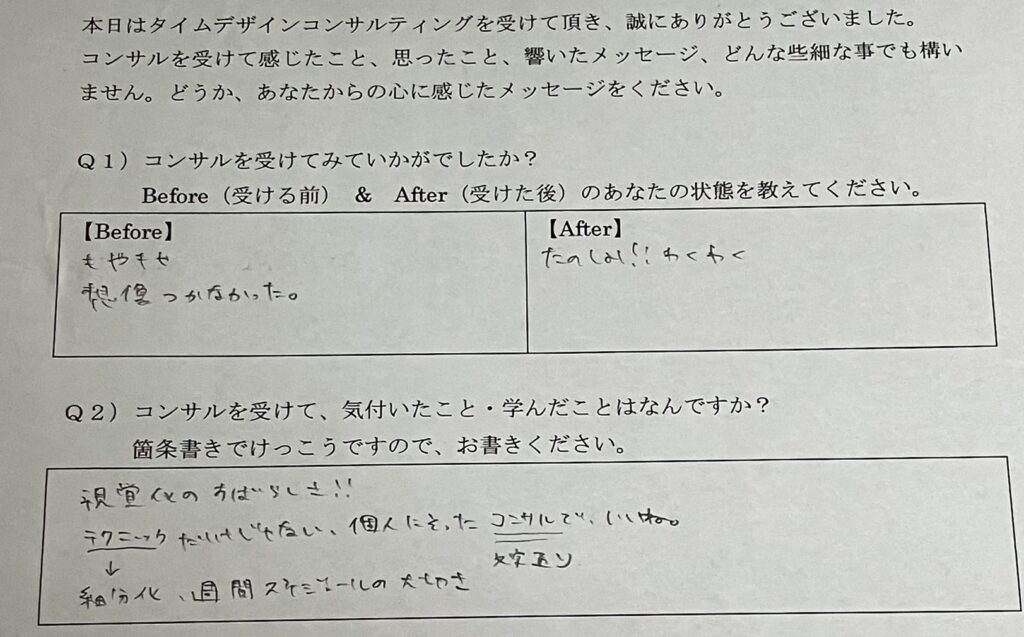 本日はタイムデザインコンサルティングを受けて頂き、誠にありがとうございました。
コンサルを受けて感じたこと、思ったこと、響いたメッセージ、どんな些細な事でも構い
ません。どうか、あなたからの心に感じたメッセージをください。
Q1）コンサルを受けてみていかがでしたか？
Before（受ける前） & After（受けた後）のあなたの状態を教えてください。
【Before】
もやもや
想像つかなかった。
【After】
たのしみ!! わくわく
Q2）コンサルを受けて、気付いたこと・学んだことはなんですか？
箇条書きでけっこうですので、お書きください。
視覚化のすばらしさ!!
テクニックだけじゃない、個人にそったコンサルで、いいね。
↓ 文字通り
細分化、週間スケジュールの大切さ